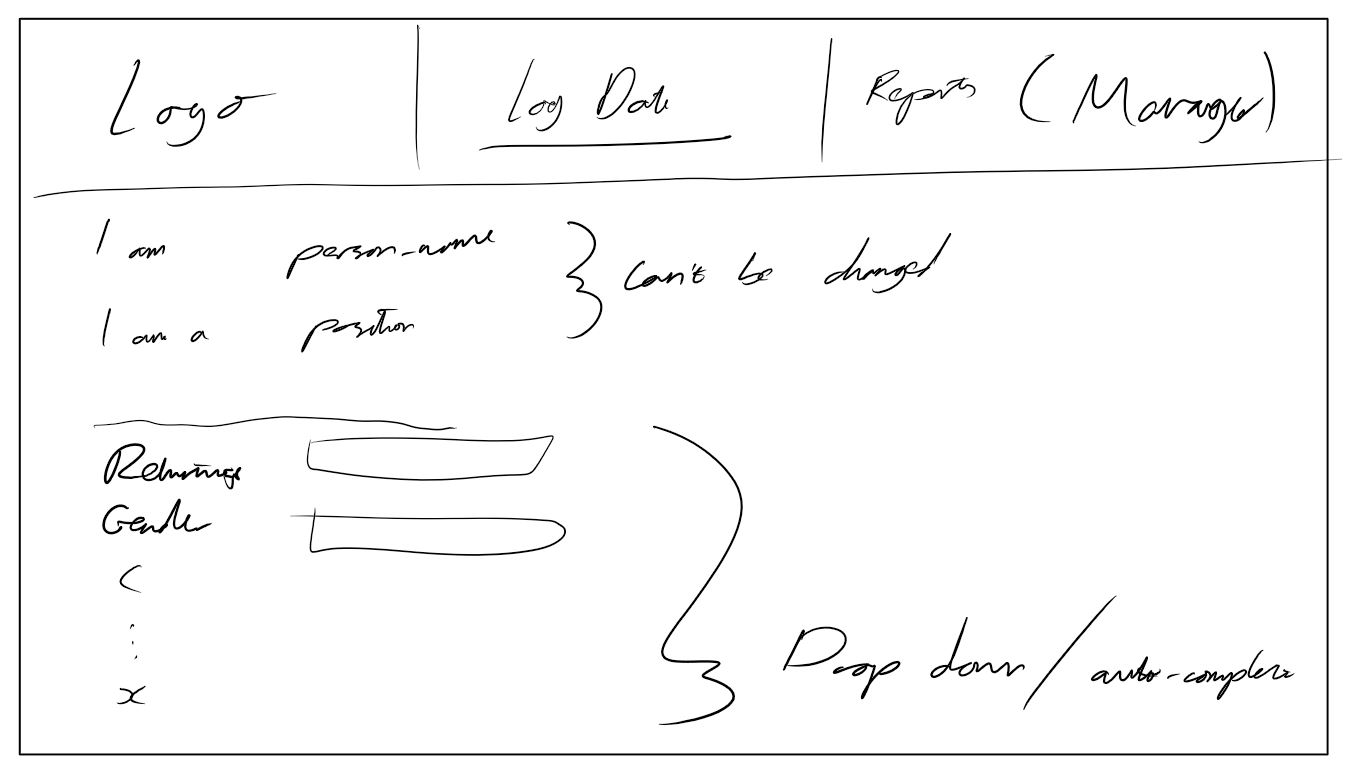 Logo
Log Data
Reports (Manager)
I am person-name
I am a position
} Can't be changed
Gender
C
⋮
x
Drop down / auto-complete